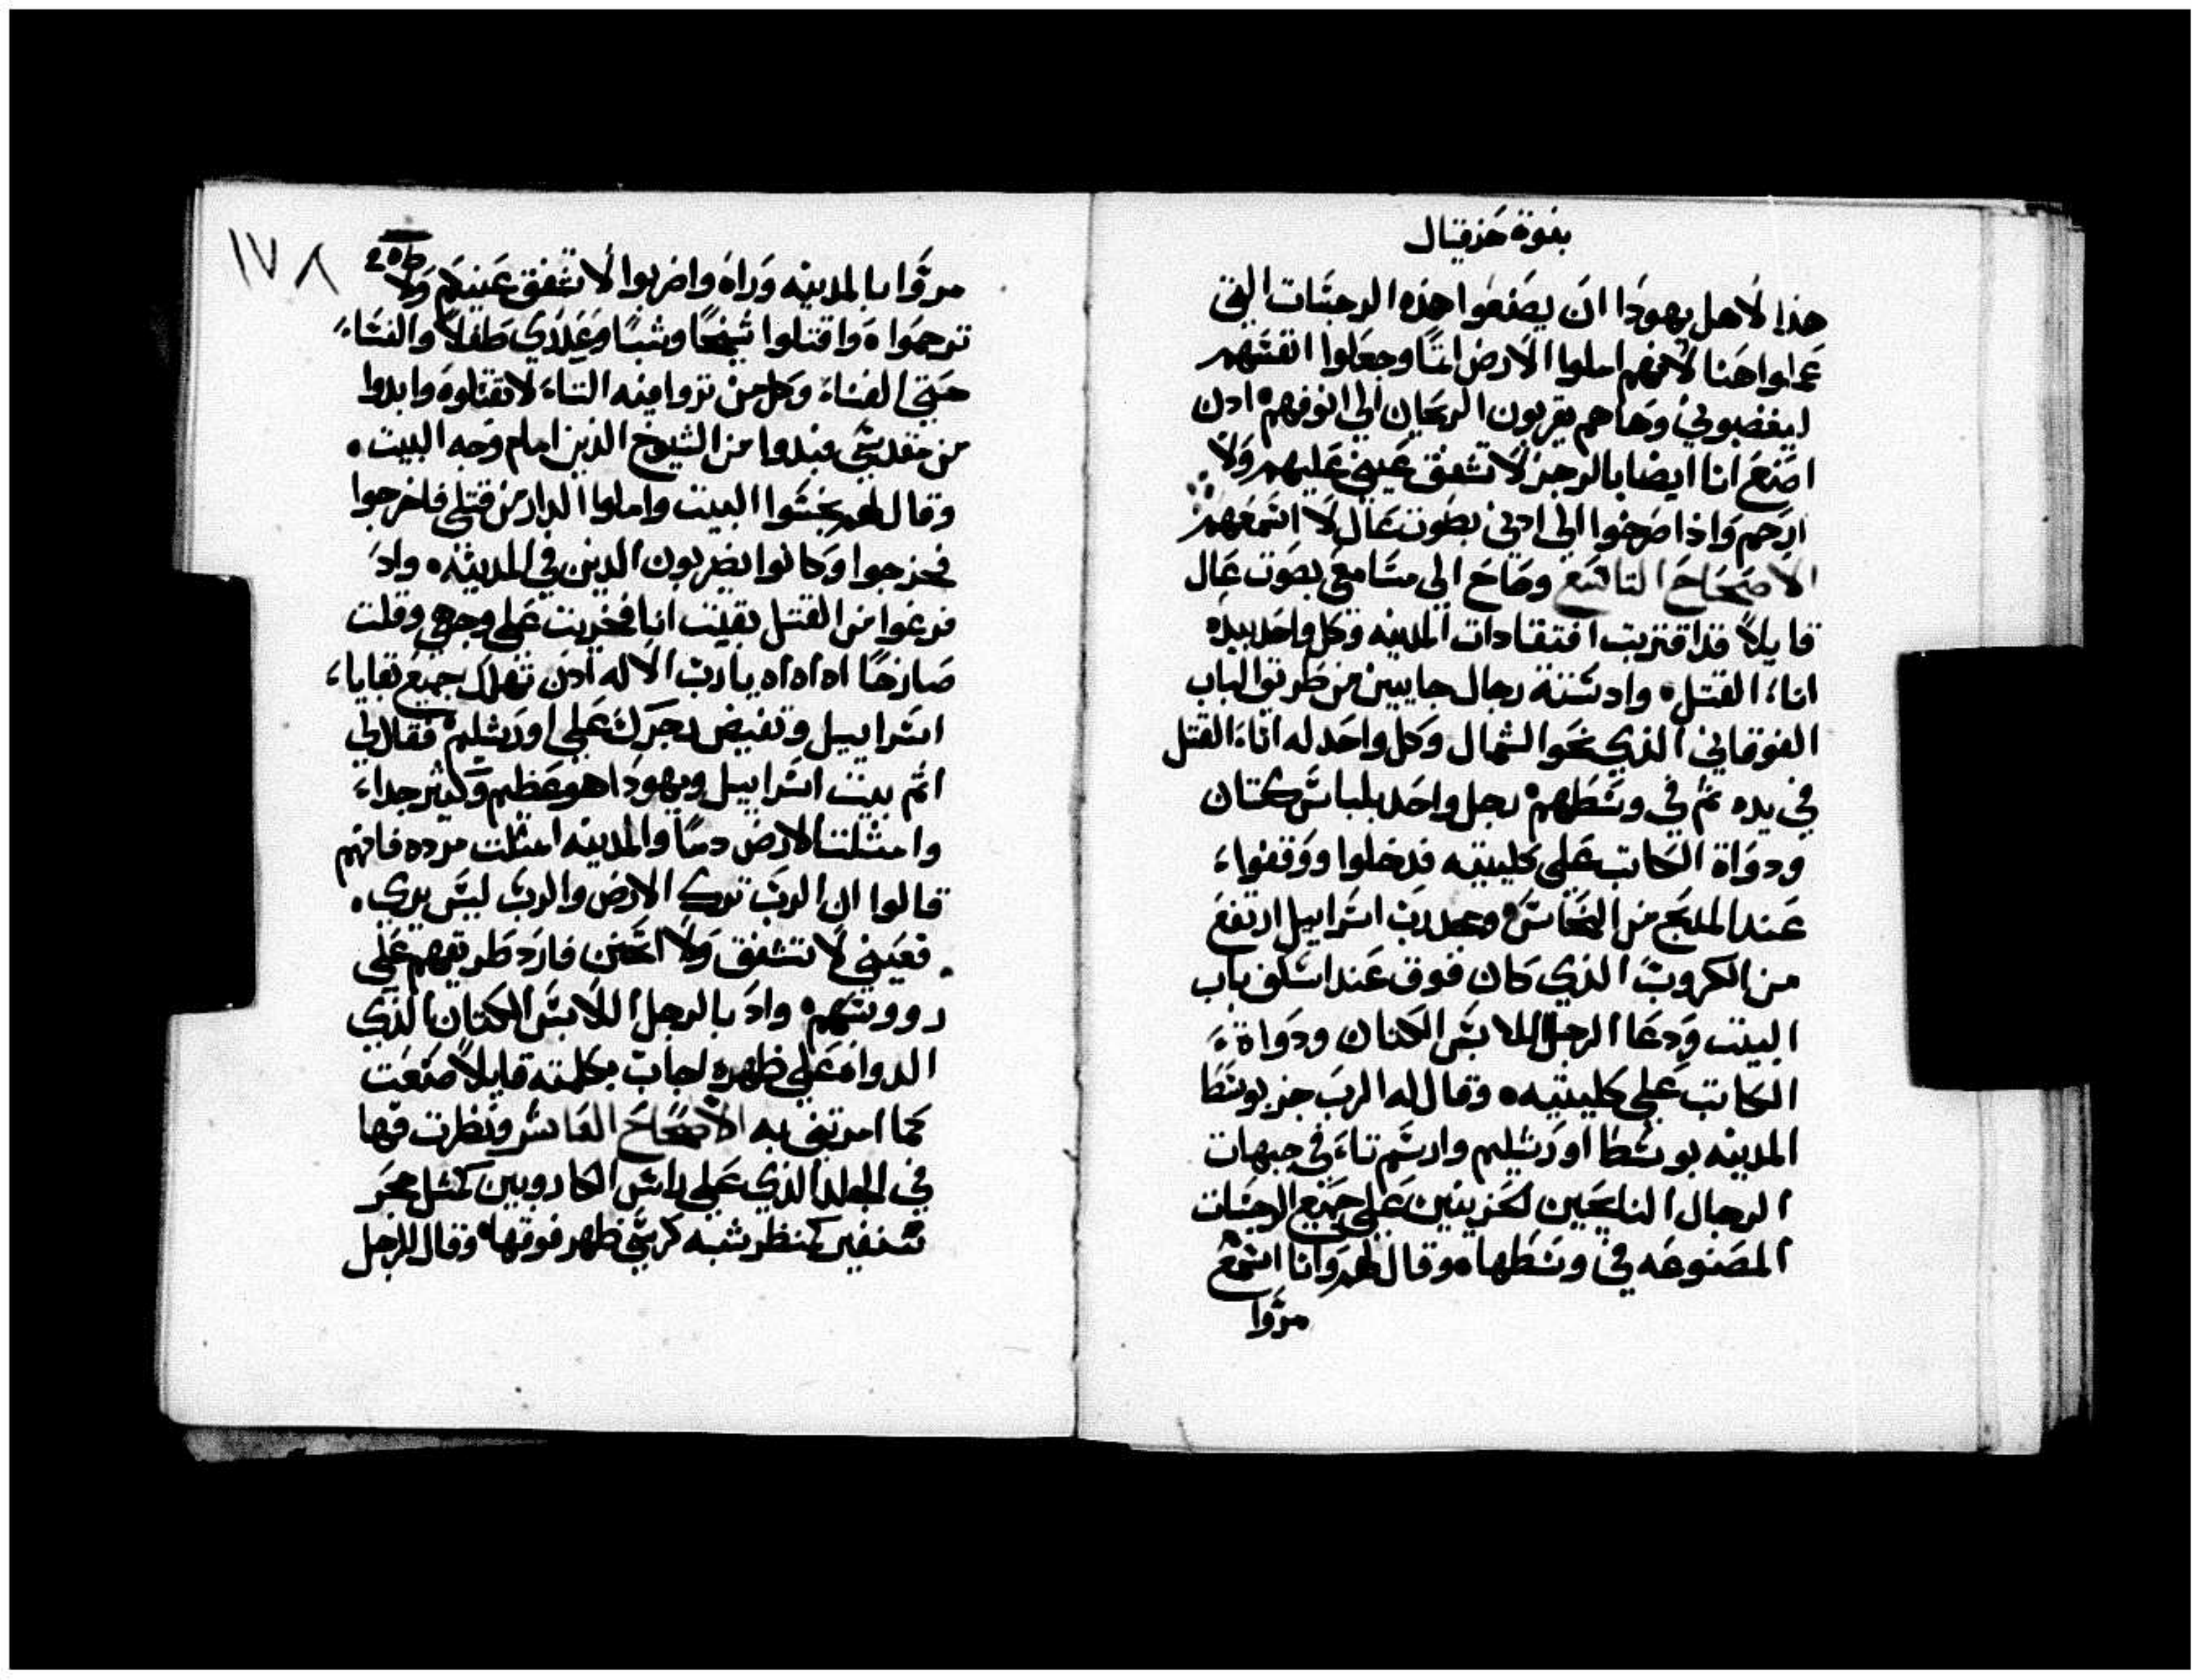 بنوة حزقيال
هذا لاهل يهودا ان يصنعوا هذه الرجسات التي
عملوا هنا لانهم املوا الارض اثمًا وجعلوا انفسهم
ليغضبوني وها هم يقربون الريحان الي انوفهم ادن
اصنع انا ايضا بالرجز لا تشفق عيني عليهم ولا
ارحم واذا صرخوا الي ادني بصوت عال لا اسمعهم
الاصحاح التاسع وصاح الي مسامعي بصوت عال
قايلاً قد اقتربت افتقادات المدينه وكل واحد بيده
اناء القتل واد ستة رجال جايين من طريق الباب
الفوقاني الذي نحو الشمال وكل واحد له اناء القتل
في يده ثم في وسطهم رجل واحد بلباس كتان
ودواة الكاتب على كليتيه فدخلوا ووقفوا
عند المدبح من النحاس ومجد رب اسراييل ارتفع
من الكروب الذي كان فوق عند اسكف باب
البيت ودعا الرجل اللابس الكتان ودواة
الكاتب على كليتيه وقال له الرب جز بوسط
المدينه بوسط اورشليم وارسم تاء في جبهات
الرجال النايحين الحزينين على جميع الرجسات
المصنوعه في وسطها وقال لهم وانا اسمع
مروا
١٧٨
مروا بالمدينه وراه واضربوا لا تشفق عينيكم ولا
ترحموا واقتلوا شيخًا وشبًا وعدارى طفلاً والنساء
حتي الفناء وكل من تروا فيه التاء لا تقتلوه وابدوا
من مقدسي فبدوا من الشيوخ الذين امام وجه البيت
وقال لهم نجسوا البيت واملوا الدار من قتلي فاخرجوا
فخرجوا وكانوا يضربون الدين في المدينه واد
فرغوا من القتل بقيت انا فخريت على وجهي وقلت
صارخًا اه اه اه يا رب الاله ادن تهلك جميع بقايا
اسراييل وتفيض رجزك على اورشليم فقال لي
اثم بيت اسراييل ويهودا هو عظيم وكثير جدا
وامتلت الارض دمًا والمدينه امتلت مرده فانهم
قالوا ان الرب ترك الارض والرب ليس يرى
فعيني لا تشفق ولا اتحنن فارد طريقهم على
رووسهم واد بالرجل اللابس الكتان الذي
الدواه على ظهره اجاب بكلمته قايلاً صنعت
كما امرتني به الاصحاح العاشر ونظرت فها
في الجلد الذي على راس الكاروبين كمثل حجر
سنفير كمنظر شبه كرسي ظهر فوقها وقال للرجل